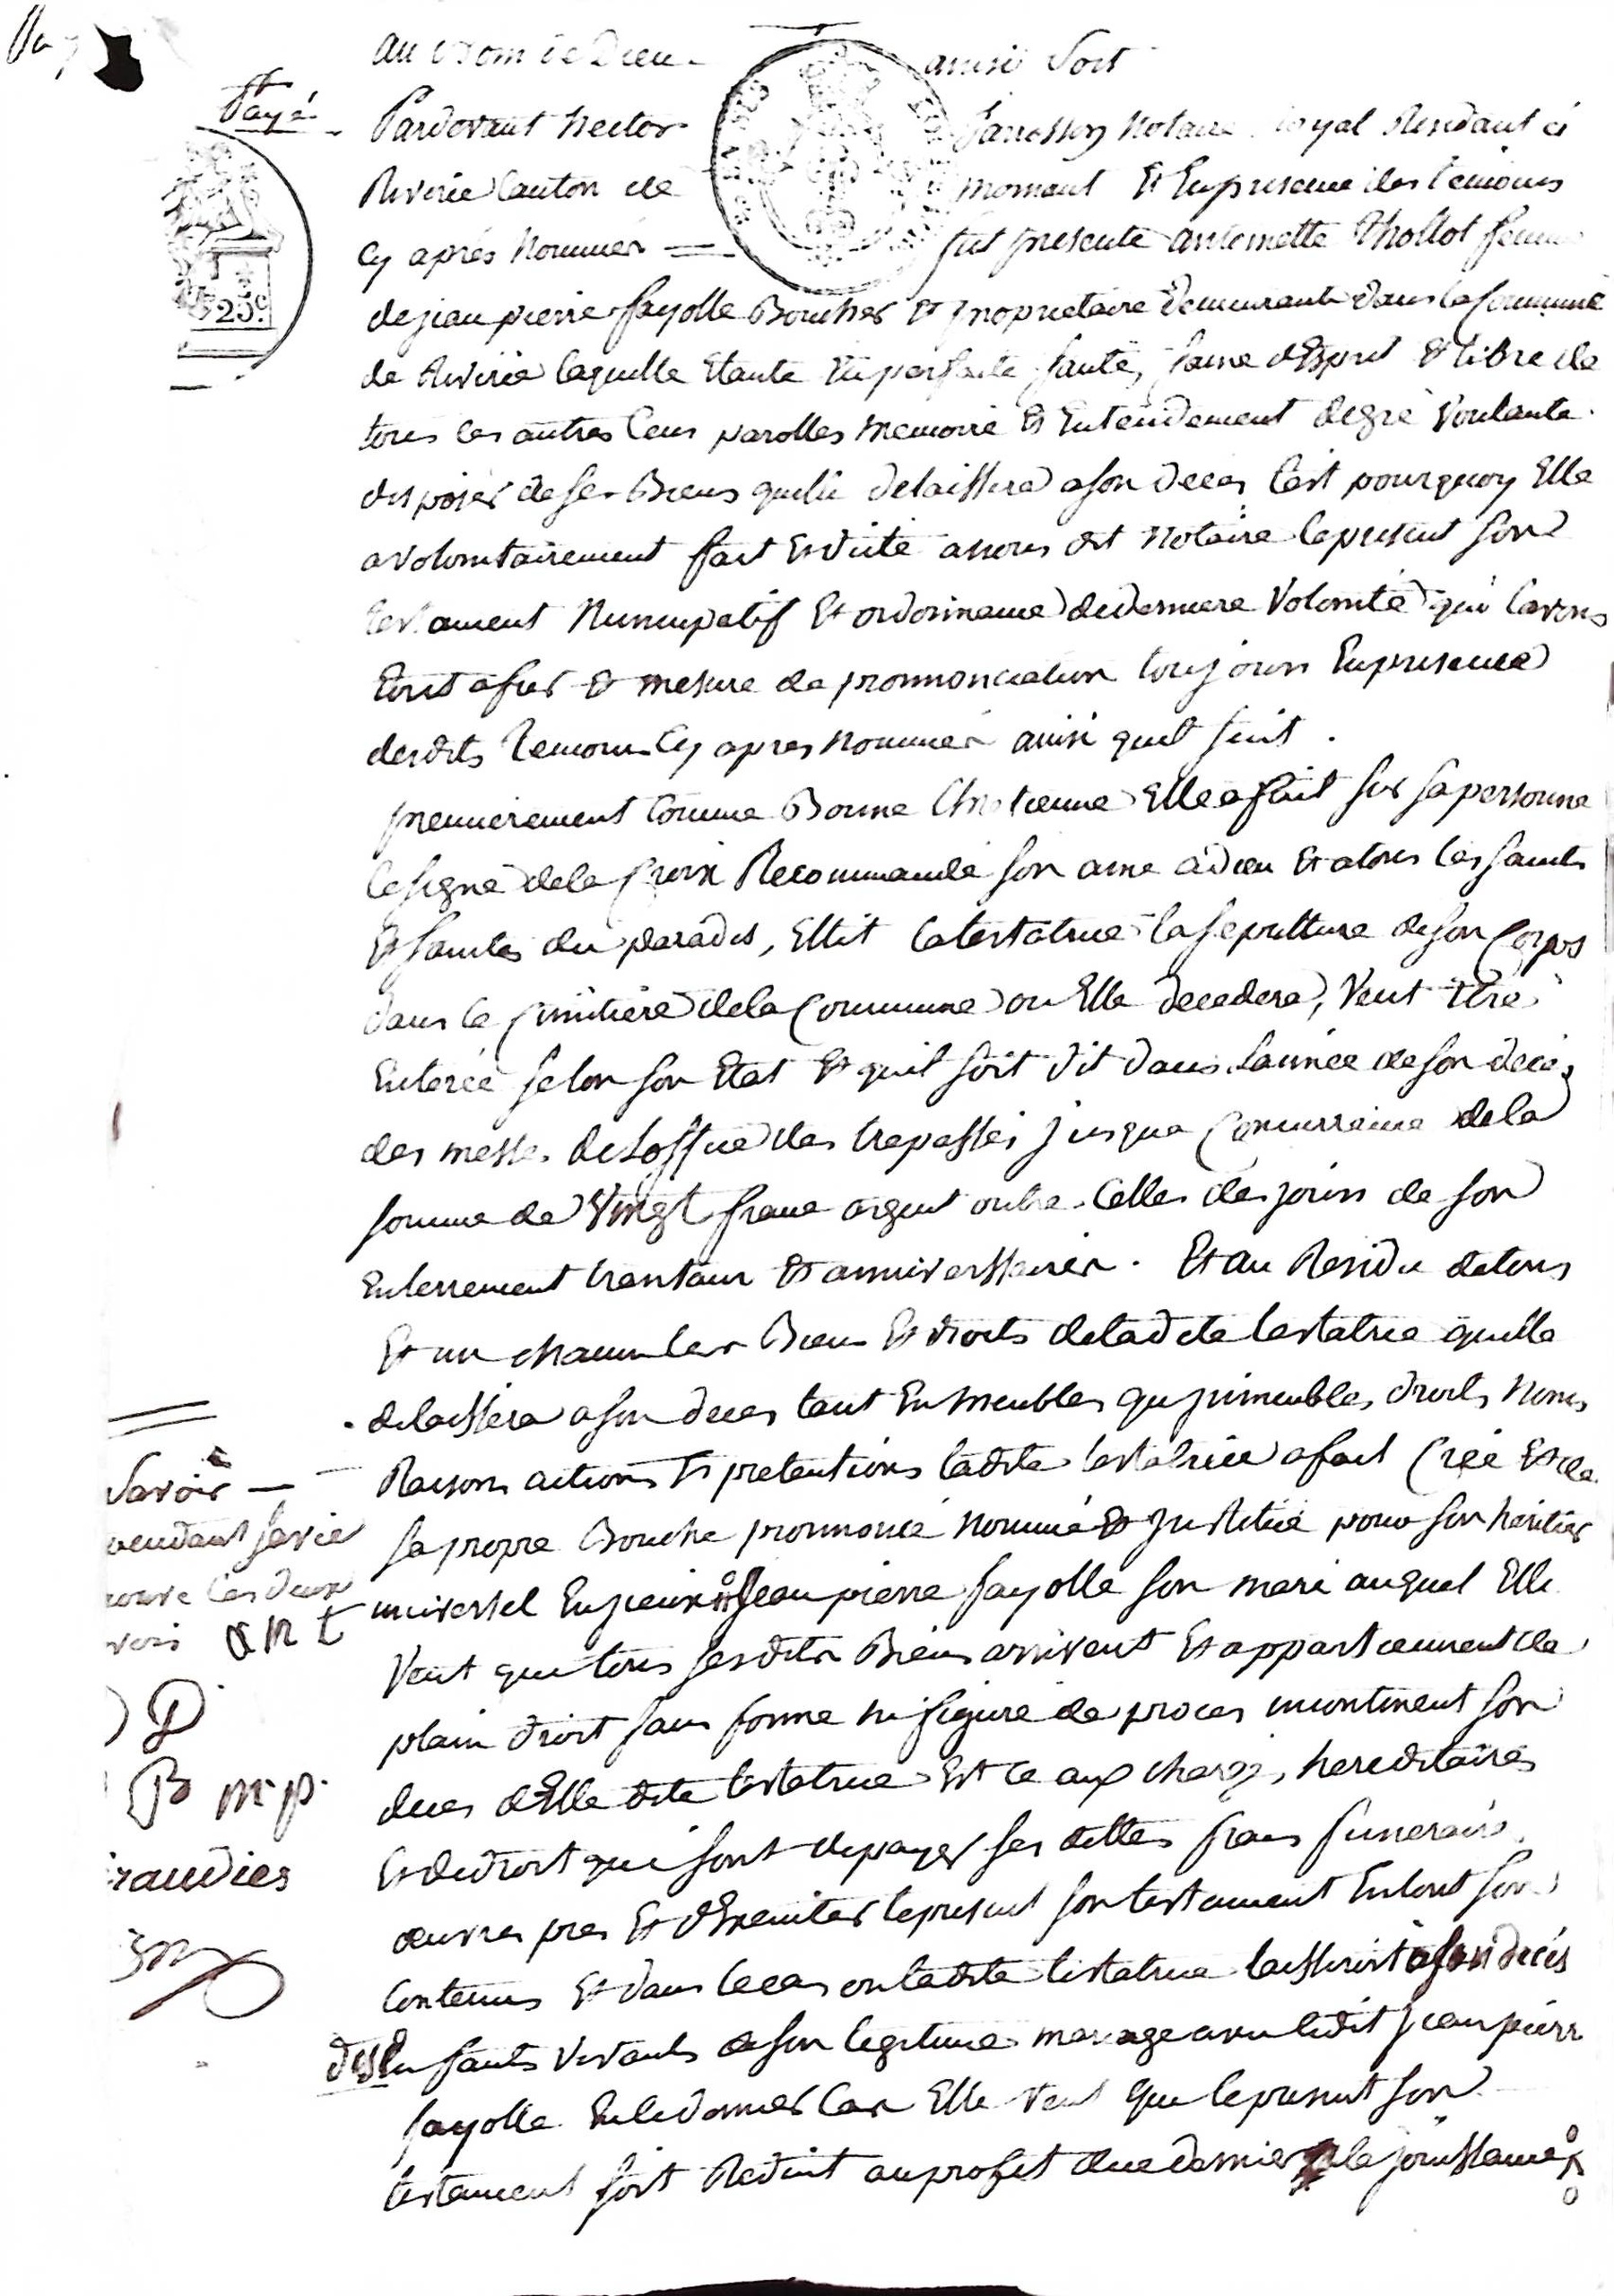 Au nom de Dieu ainsi soit
Payé
Pardevant hector Janesson Notaire royal Residant à
Riverie Canton de Mornant Et En presence des temoins
Cy après Nommés fut presente antoinette Thollot femme
de jean pierre fayolle Boucher Et proprietaire demeurante dans la Commune
25c.
de Riverie laquelle Etante En parfaite santé, saine d'Esprit Et libre de
tous les autres Cens parolles memoire Et Entendement de gré Voulante
disposer de ses Biens quelle delaissera a son deces C'est pourquoy Elle
a volontairement fait Et dicté a nous dit Notaire le present son
testament Nuncupatif Et ordonnance de derniere Volonté qui lavons
Ecrit a fur Et mesure de pronnonciation toujours En presence
desdits Temoins Cy apres nommés ainsi quil suit .
premierement Comme Bonne Chretienne Elle a fait sur sa personne
le signe de la Croix Recommandé son ame a dieu Et a tous les saints
Et saintes du paradis, Ellit la testatrice la sepulture de son Corps
dans le Cimitiere de la Commune ou Elle decedera, Veut être
Enterée selon son Etat Et quil soit dit dans lannée de son decés
des messes de Loffice des trepassés jusqua Concurrance de la
somme de Vingt franc argent outre Celles des jours de son
Enterrement trantain Et anniverssaires . Et au Residu de tous
Et un chacun les Biens Et droits de ladite testatrice quelle
delaissera a son deces tant En meubles qu'jmmeubles, droits Noms
Raisons actions Et pretentions ladite testatrice a fait Créé Et de
sa propre Bouche pronnoncé Nommé Et Institué pour son héritier
universel jean pierre fayolle son mari auquel Elle
Veut que tous sesdits Biens arrivent Et appartiennent de
plain droit sans forme ni figure de proces incontinent son
deces d'Elle dite testatrice Et Ce aux charges hereditaires
Et de droit qui sont de payer ses dettes frais funerairs
œuvres pies Et d'Executer le present son testament En tout son
Contenus Et dans le cas ou ladite testatrice laisseroit a son decés
des Enfants vivants de son legitime mariage avec ledit jean pierre
fayolle En le dernier Cas Elle veut que le present son
testament soit Reduit au profit de ce dernier a la jouissance
Savoir
pendant sa vie
les deux
D
B m p
raudies